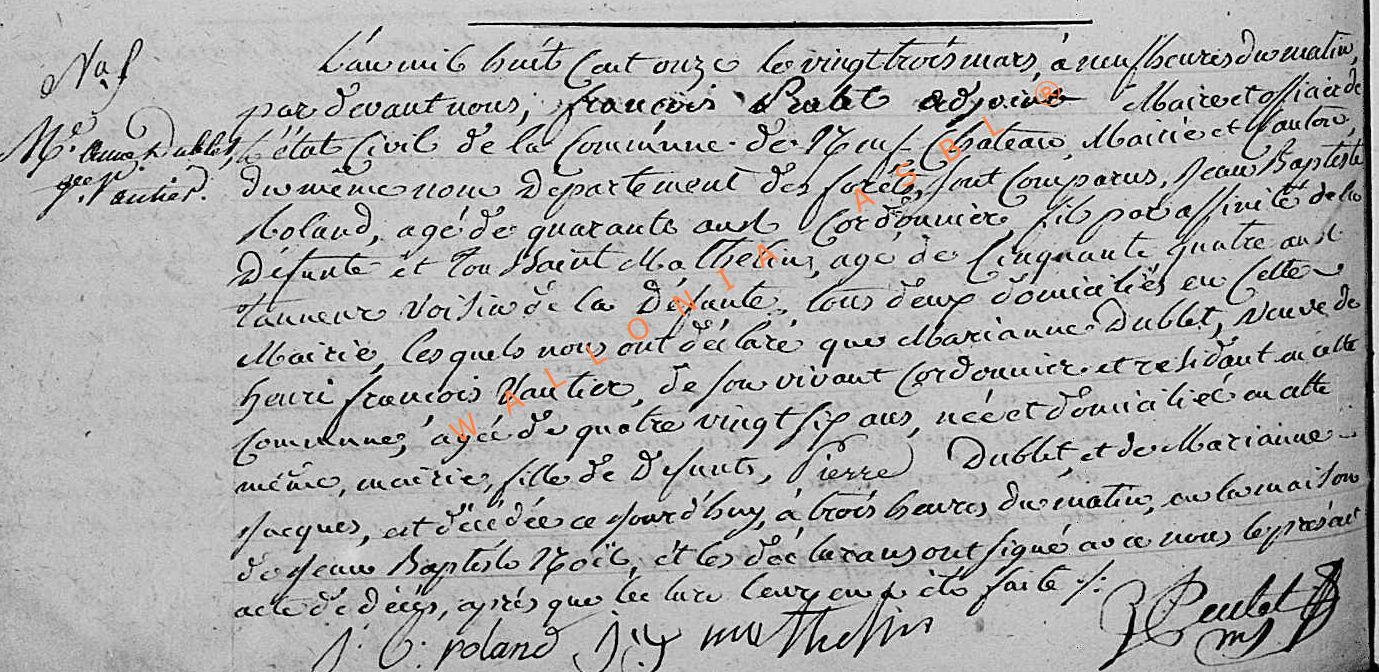 L'an mil huit Cent onze le vingt trois mars, à neuf heures du matin,
par devant nous, françois Poulet adjoint Maire et officier de
L'état Civil de la Commune de Neuf-Chateau, Mairie et Canton,
du même nom Département des forêts, sont Comparus, Jean Baptiste
Roland, agé de quarante ans Cordonnier, fils par affinité de la
Défunte et Toussaint Mathelin, agé de Cinquante quatre ans
tanneur voisin de la Défunte, tous deux domiciliés en Cette
Mairie, lesquels nous ont déclaré que Marianne Dublet, veuve de
henri françois Vautier, de son vivant Cordonnier et residant en cette
Commune, agée de quatre vingt six ans, née et domiciliée en cette
même mairie, fille de Defunts, Pierre Dublet, et de Marianne
Jacques, est décédée ce jourd'huy, à trois heures du matin, en la maison
de Jean Baptiste Noël, et les déclarans ont signé avec nous le présent
acte de décès, après que lecture leur en a été faite ./.
N.
Me. anne Dublet
Vautier.
J. B. roland mathelin
WALLONIA ASBL ®